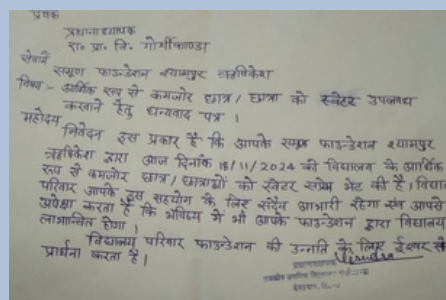 प्रेषक
प्रधानाध्यापक
रा. प्रा. वि. गोर्गीकाण्डा
सेवामें
समूण फाउन्डेशन श्यामपुर ऋषिकेश
विषय :- आर्थिक रूप से कमजोर छात्र/ छात्रा को स्वेटर उपलब्ध
कराने हेतु धन्यवाद पत्र ।
महोदय
निवेदन इस प्रकार है कि आपके समूण फाउन्डेशन श्यामपुर
ऋषिकेश द्वारा आज दिनांक 18/11/2024 को विद्यालय के आर्थिक
रूप से कमजोर छात्र/ छात्राओं को स्वेटर सप्रेम भेंट की है। विद्यालय
परिवार आपके इस सहयोग के लिए सदैव आभारी रहेगा एवं आपसे
अपेक्षा करता है कि भविष्य में भी आपके फाउन्डेशन द्वारा विद्यालय
लाभान्वित होगा ।
विद्यालय परिवार फाउन्डेशन की उन्नति के लिए ईश्वर से
प्रार्थना करता है।